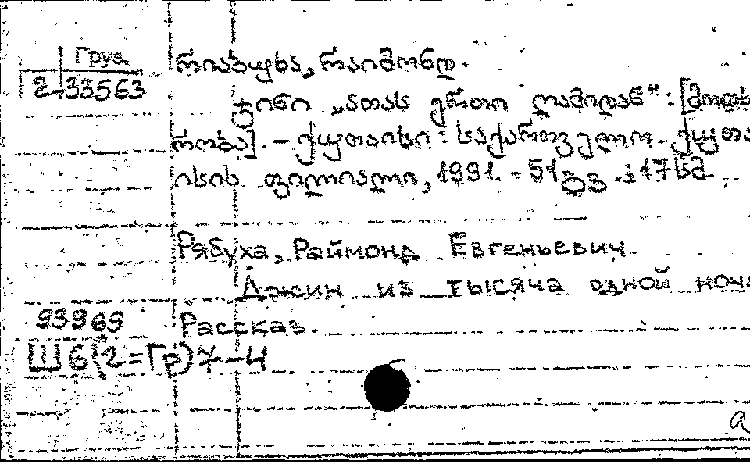 Груз
2-33563
რიაბუხა, რაიმონდ.
ჯინი „ათას ერთი ღამიდან“: [მოთხ
რობა]. – ქუთაისი: საქართველო. ქუთა
ისის ფილიალი, 1991. - 51 გვ.; 17 სმ
Рябуха, Раймонд Евгеньевич
Джин из тысяча одной ноч
93969 Рассказ.
Ш6(2=Гр)7-4